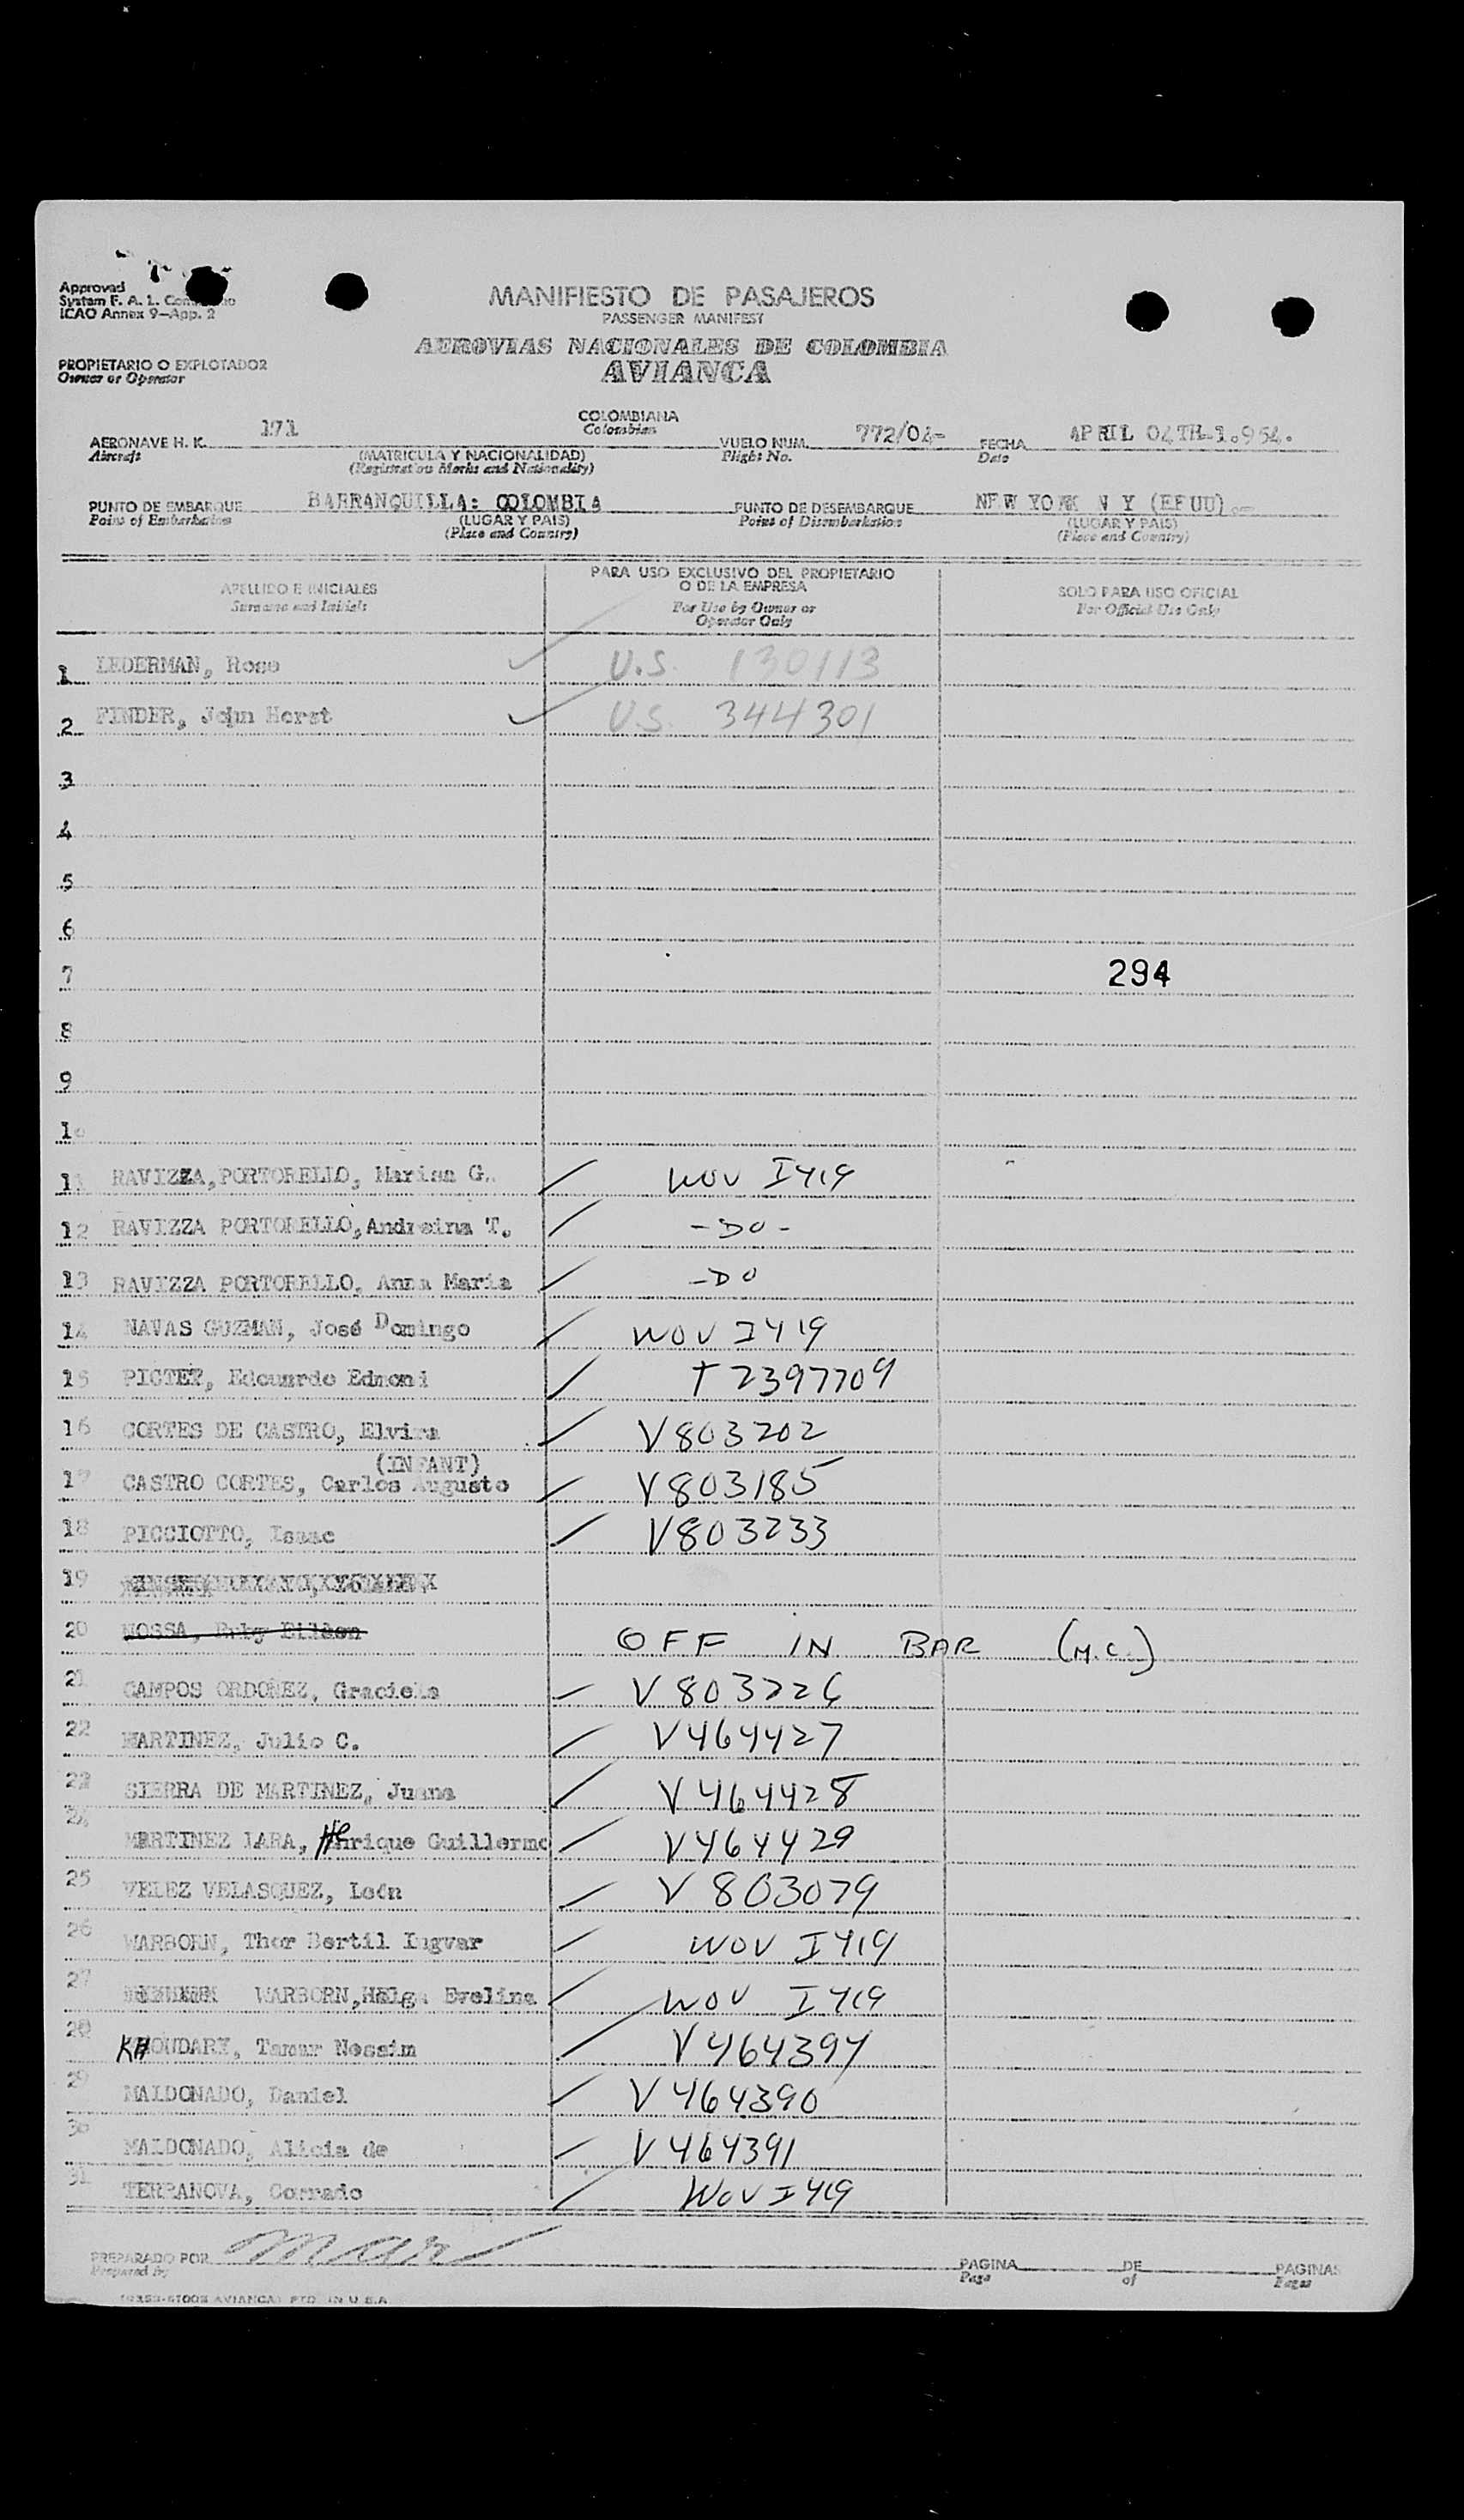 Approved
System F. A. L.
ICAO Annex 9—App. 2
MANIFIESTO DE PASAJEROS
PASSENGER MANIFEST
AEROVIAS NACIONALES DE COLOMBIA
AVIANCA
PROPIETARIO O EXPLOTADOR
Owner or Operator
COLOMBIANA
Colombian
AERONAVE H. K. 171 VUELO NUM. 772/04- FECHA APRIL 04TH-1.954.
Aircraft (MATRICULA Y NACIONALIDAD) Flight No. Date
(Registration Marks and Nationality)
PUNTO DE EMBARQUE BARRANQUILLA: COLOMBIA PUNTO DE DESEMBARQUE NEW YORK N Y (EEUU).-
Point of Embarkation (LUGAR Y PAIS) Point of Disembarkation (LUGAR Y PAIS)
(Place and Country) (Place and Country)
APELLIDO E INICIALES PARA USO EXCLUSIVO DEL PROPIETARIO SOLO PARA USO OFICIAL
Surname and Initials O DE LA EMPRESA For Official Use Only
For Use by Owner or
Operator Only
1 LEDERMAN, Rose U.S. 130113
2 PINDER, John Horst U.S. 344301
3
4
5
6
7 294
8
9
10
11 RAVIZZA,PORTORELLO, Marisa G. WOV I419
12 RAVIZZA PORTORELLO,Andreina T. -DO-
13 RAVIZZA PORTORELLO, Anna Maria -DO
14 NAVAS GUZMAN, José Domingo WOV I419
15 PICTET, Edouardo Edmond T2397709
16 CORTES DE CASTRO, Elvira V803202
(INFANT)
17 CASTRO CORTES, Carlos Augusto V803185
18 PICCIOTTO, Isaac V803233
19
20 MOSSA, Ruby OFF IN BAR (M.C.)
21 CAMPOS ORDOÑEZ, Graciela V803226
22 MARTINEZ, Julio C. V464427
23 SIERRA DE MARTINEZ, Juana V464428
24 MARTINEZ LARA, Henrique Guillermo V464429
25 VELEZ VELASQUEZ, León V803079
26 WARBORN, Thor Bertil Ingvar WOV I419
27 WARBORN,Helga Evelina WOV I419
28 KHOUDARY, Tamur Nessim V464394
29 MALDONADO, Daniel V464390
30 MALDONADO, Alicia de V464391
31 TERRANOVA, Corrado WOV I419
PREPARADO POR PAGINA DE PAGINAS
Prepared by Page of Pages
AVIANCA) PTD. IN U.S.A.